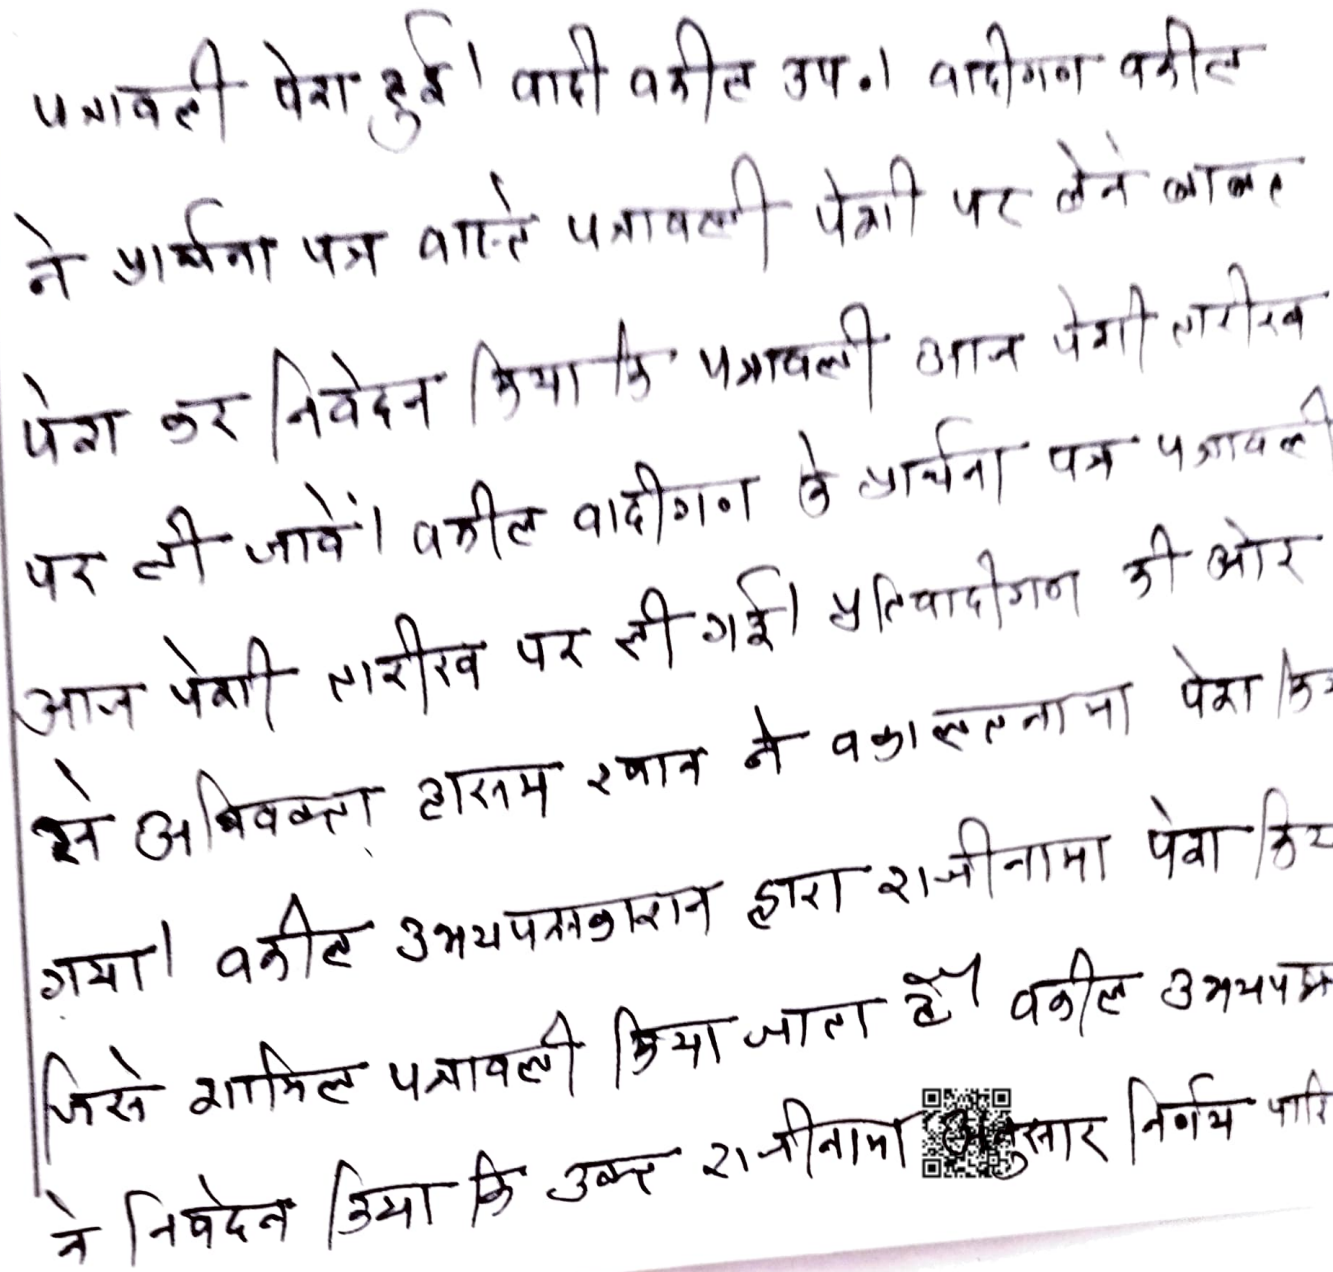 पत्रावली पेश हुई। वादी वकील उप.। वादीगण वकील
ने प्रार्थना पत्र वास्ते पत्रावली पेशी पर लेने बाबत
पेश कर निवेदन किया कि पत्रावली आज पेशी तारीख
पर ली जावें। वकील वादीगण के प्रार्थना पत्र पत्रावली
आज पेशी तारीख पर ली गई। प्रतिवादीगण की ओर
से अधिवक्ता हासम खान ने वकालतनामा पेश कि
गया। वकील उभयपक्षकारान द्वारा राजीनामा पेश किय
जिसे शामिल पत्रावली किया जाता है। वकील उभयपक्ष
ने निवेदन किया कि उक्त राजीनामा अनुसार निर्णय पारि